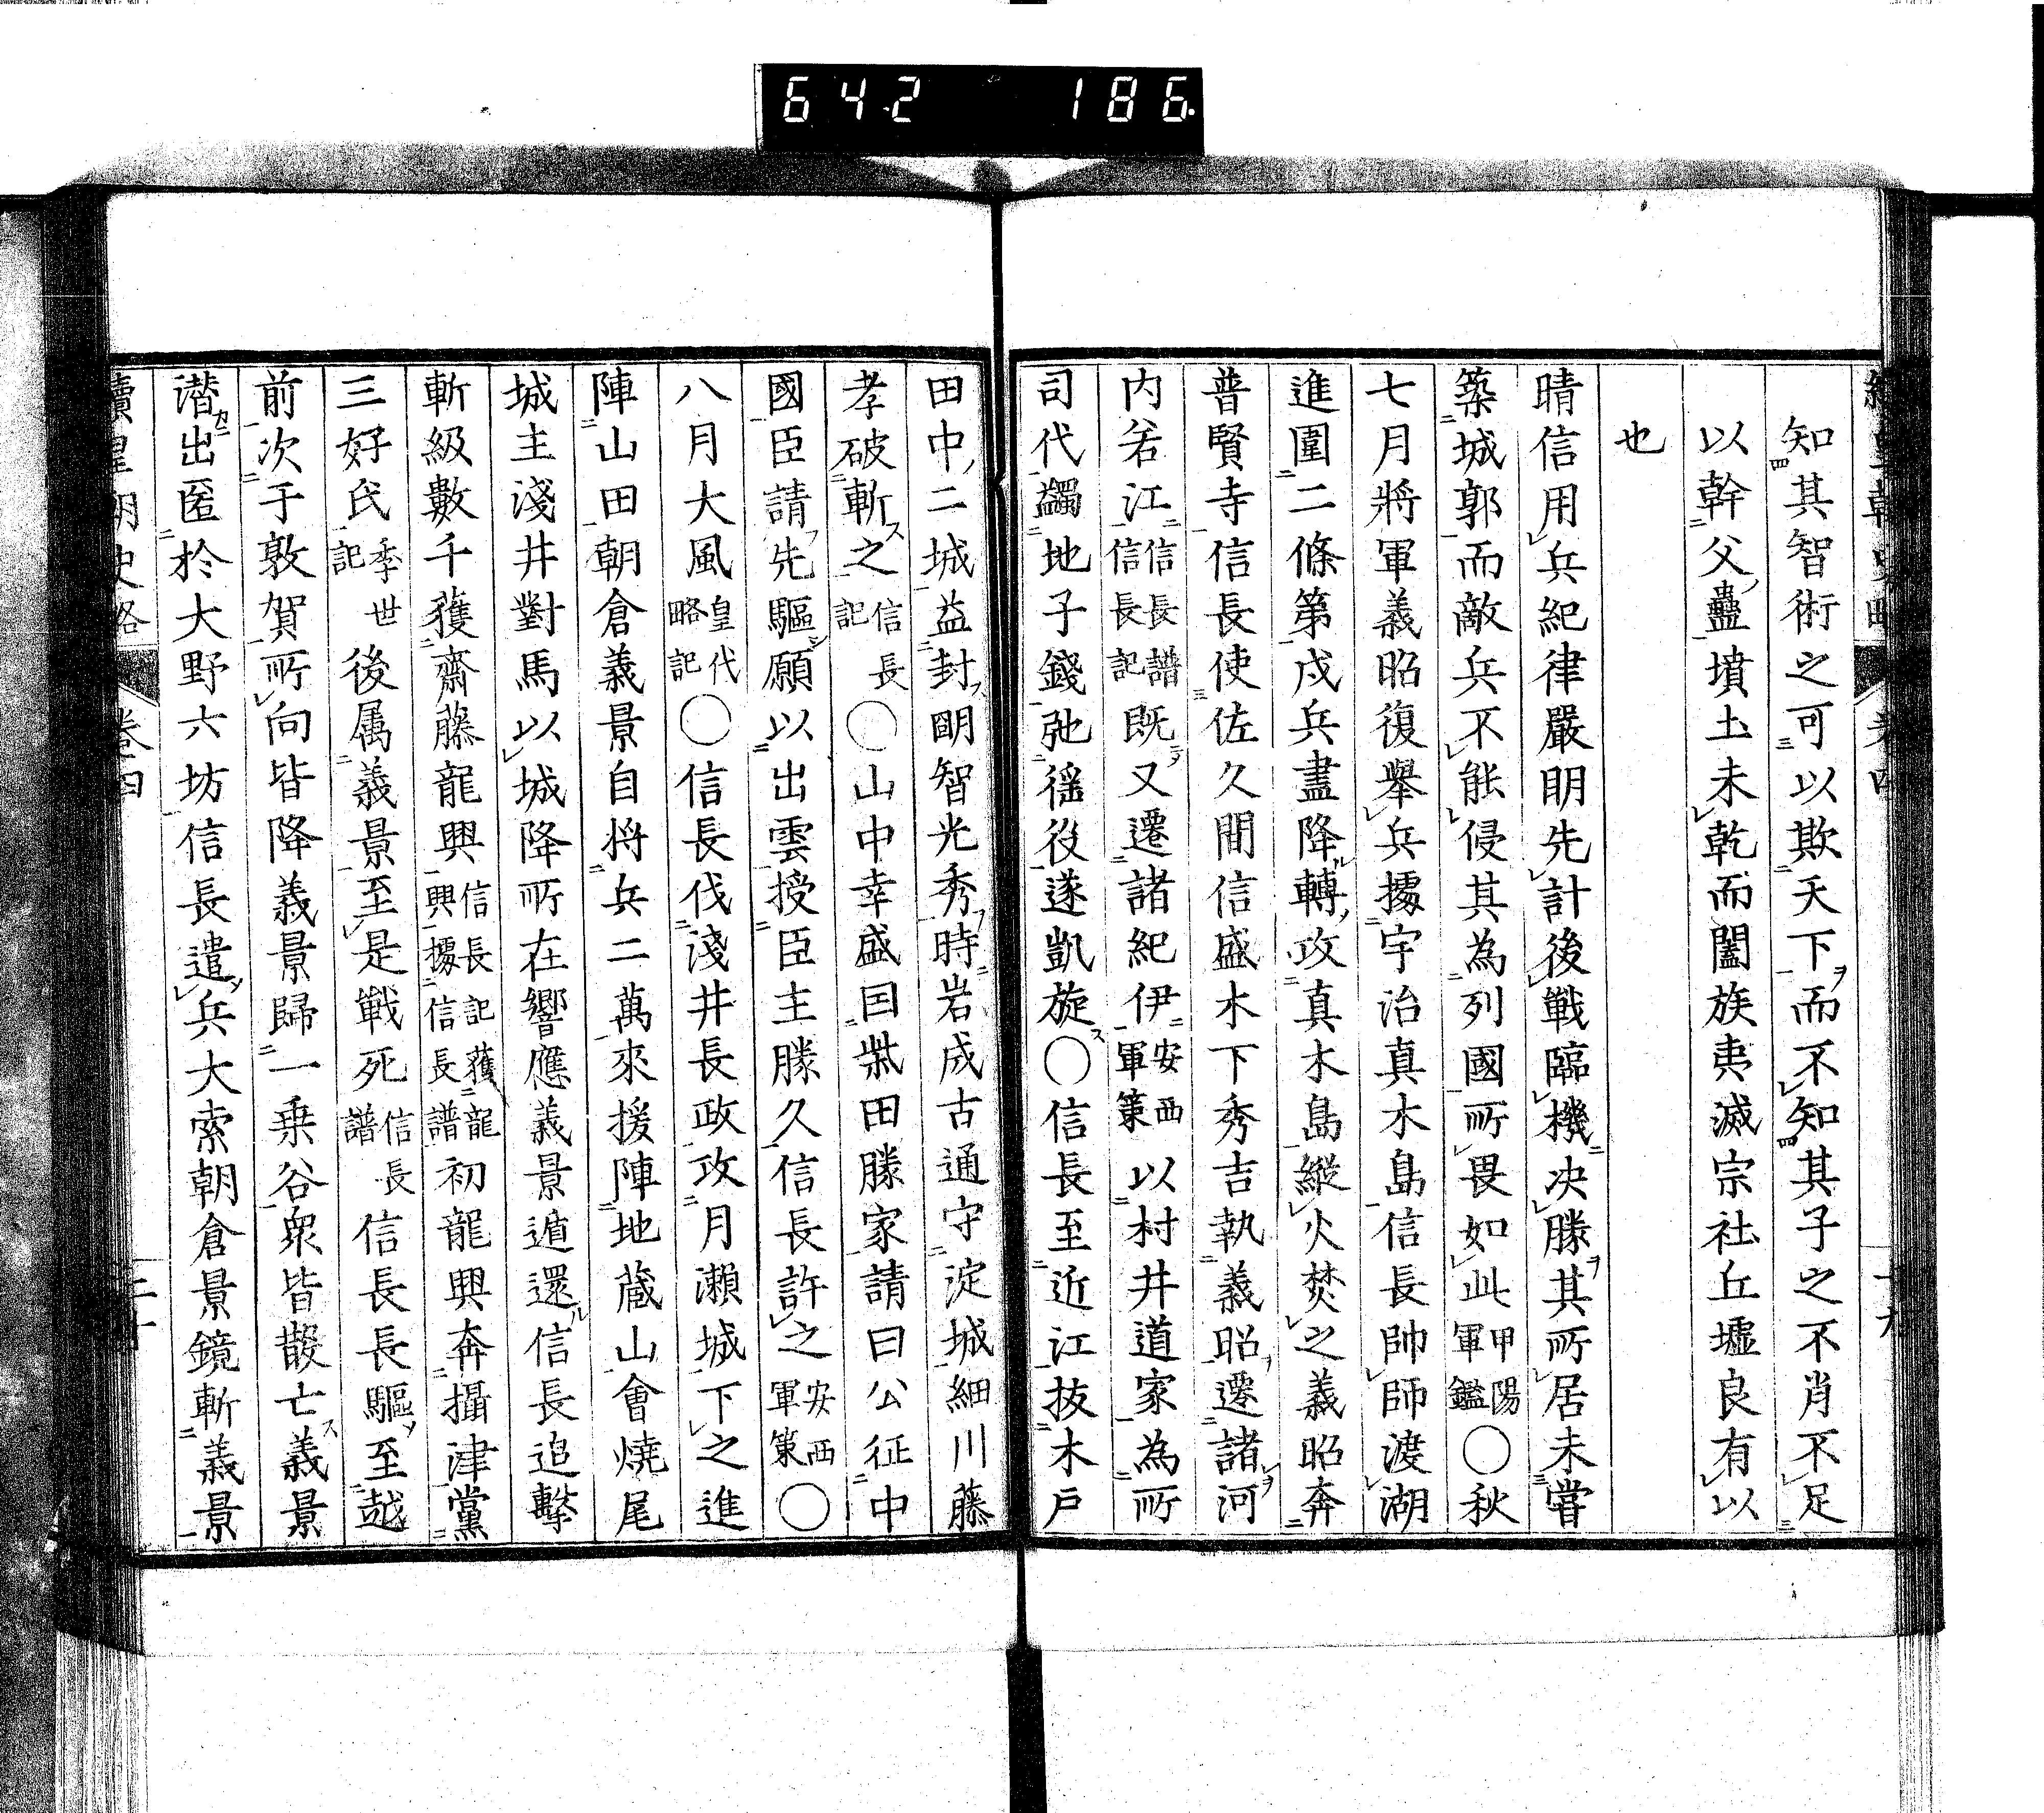 642 186
知其智術之可以欺天下而不知其子之不肖不足
以幹父蠱墳土未乾而闔族夷滅宗社丘墟良有以
也
晴信用兵紀律嚴明先計後戰臨機决勝其所居未嘗
築城郭而敵兵不能侵其為列國所畏如此甲陽軍鑑〇秋
七月將軍義昭復舉兵據宇治真木島信長帥師渡湖
進圍二條第戍兵盡降轉攻真木島縱火焚之義昭奔
普賢寺信長使佐久間信盛木下秀吉執義昭遷諸河
内若江信長譜信長記既又遷諸紀伊安西軍策以村井道家為所
司代蠲地子錢弛徭役遂凱旋〇信長至近江拔木戶
田中二城益封明智光秀時岩成古通守淀城細川藤
孝破斬之信長記〇山中幸盛因柴田勝家請曰公征中
國臣請先驅願以出雲授臣主勝久信長許之安西軍策〇
八月大風皇代略記〇信長伐淺井長政攻月瀨城下之進
陣山田朝倉義景自將兵二萬來援陣地藏山會燒尾
城主淺井對馬以城降所在響應義景遁還信長追擊
斬級數千獲齋藤龍興信長記獲龍興據信長譜初龍興奔攝津黨
三好氏季世記後属義景至是戰死信長譜信長長驅至越
前次于敦賀所向皆降義景歸一乗谷衆皆散亡義景
潛出匿於大野六坊信長遣兵大索朝倉景鏡斬義景
續皇朝史略 卷四